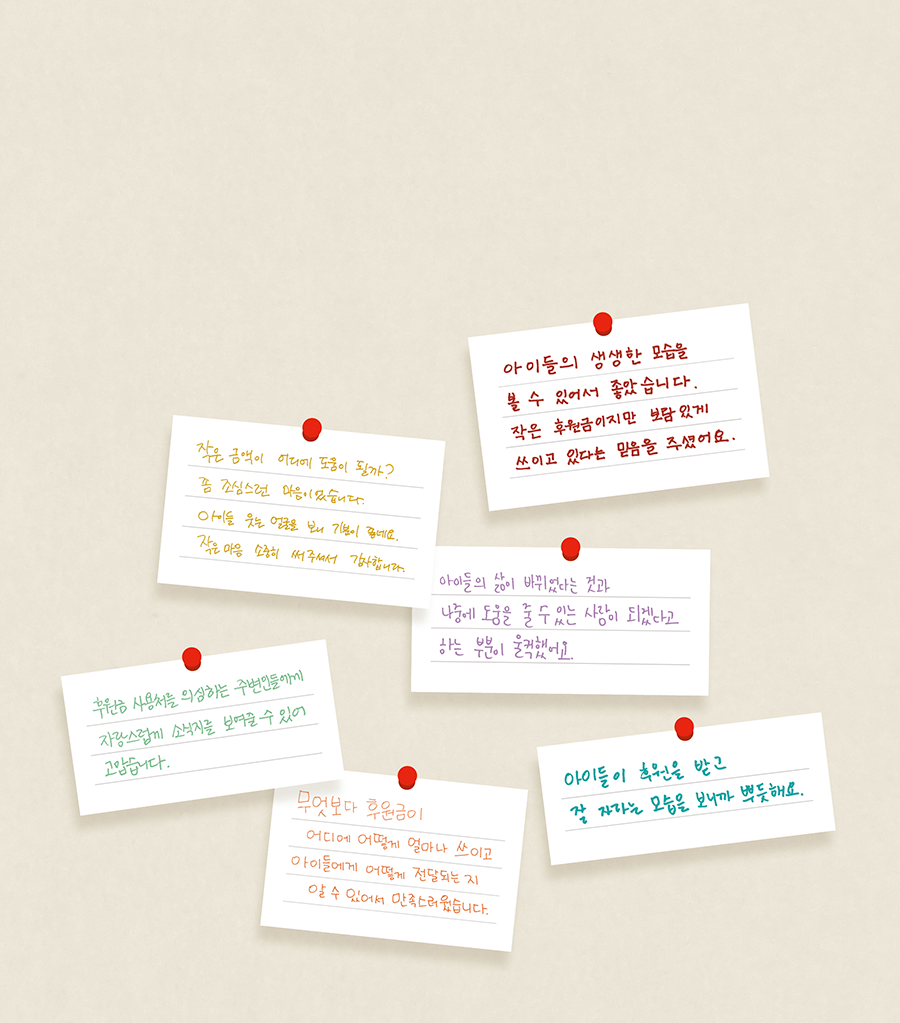 아이들의 생생한 모습을
볼 수 있어서 좋았습니다.
작은 후원금이지만 보람있게
쓰이고 있다는 믿음을 주셨어요.
작은 금액이 어디에 도움이 될까?
쫌 조심스런 마음이었습니다.
아이들 웃는 얼굴을 보니 기분이 좋네요.
작은 마음 소중히 써 주셔서 감사합니다.
아이들의 삶이 바뀌었다는 것과
나중에 도움을 줄 수 있는 사람이 되겠다고
하는 부분이 울컥했어요.
후원금 사용처를 의심하는 주변인들에게
자랑스럽게 소식지를 보여줄 수 있어
고맙습니다.
아이들이 후원을 받고
잘 자라는 모습을 보니까 뿌듯해요.
무엇보다 후원금이
어디에 어떻게 얼마나 쓰이고
아이들에게 어떻게 전달되는 지
알 수 있어서 만족스러웠습니다.